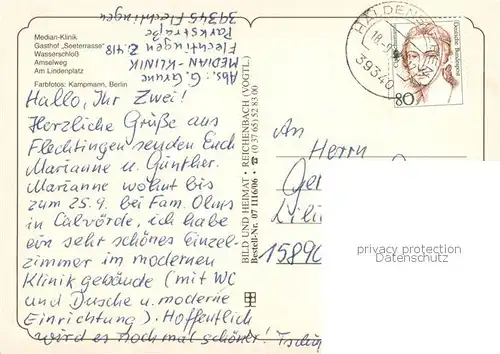 Median-Klinik
Gasthof "Seeterrasse"
Wasserschloß
Amselweg
Am Lindenplatz
Farbfotos: Kampmann, Berlin
Abs.: G.
MEDIAN-KLINIK
Flechtingen Z.418
Parkstraße
39345 Flechtingen
Hallo, Ihr Zwei!
Herzliche Grüße aus
Flechtingen senden Euch
Marianne u. Günther.
Marianne wohnt bis
zum 25.9. bei Fam. Olms
in Calvörde, ich habe
ein sehr schönes Einzel-
zimmer im modernen
Klinikgebäude (mit WC
und Dusche u. moderne
Einrichtung). Hoffentlich
wird es noch mal schöner! Tschüß
BILD UND HEIMAT · REICHENBACH (VOGTL.)
Bestell-Nr. 07 1116/06 · ☎ (0 37 65) 52 83 00
39340
80
Deutsche Bundespost
An
Herrn
15890
privacy protection
Datenschutz